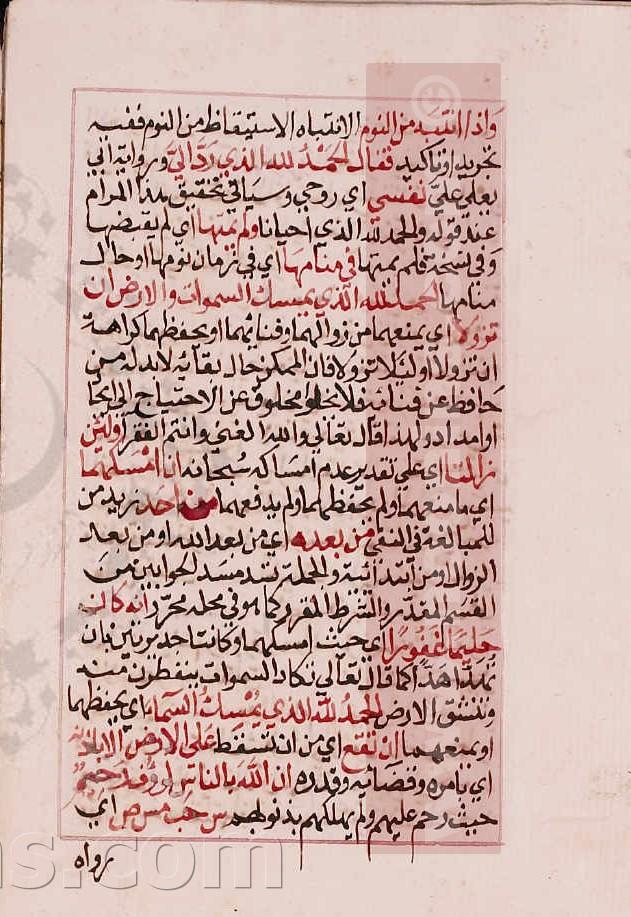 واذا انتبه من النوم الانتباه الاستيقاظ من النوم ففيه
تجريد او تاكيد فقال الحمد لله الذي رد الي وروايه ابي
يعلي علي نفسي اي روحي وسياتي تحقيق هذا المرام
عند قوله والحمد لله الذي احيانا ولم يمتها اي لم يقبضها
وفي نسخة فلم يمتها في منامها اي في زمان نومها او حال
منامها الحمد لله الذي يمسك السموات والارض ان
تزولا اي يمنعهما من زوالهما وفنائهما او يحفظهما كراهة
ان تزولا او ليلا تزولا فان الممكن حال بقائه لا بد له من
حافظ عن فنائه فلا يخلو مخلوق عن الاحتياج الي ايجاد
او امداد ولهذا قال تعالي والله الغني وانتم الفقرا ولئن
زالتا اي علي تقدير عدم امساكه سبحانه ان امسكهما
اي ما منعهما ولم يحفظهما ولم يدفعهما من احد زيد من
للمبالغة في النفي من بعده اي من بعد الله او من بعد
الزوال او من ابتدائية والجملة تسد مسد الجوابين من
القسم المقدر والشرط المقرر كما هو في محله محرر انه كان
حليما غفورا اي حيث امسكهما وكانتا جديرتين بان
تهدا هدا كما قال تعالي تكاد السموات يتفطرن منه
وتنشق الارض الحمد لله الذي يمسك السماء اي يحفظهما
او يمنعهما ان تقع اي من ان تسقط علي الارض الا باذنه
اي بامره وقضائه وقدره ان الله بالناس لرؤف رحيم
حيث رحم عليهم ولم يهلكهم بذنوبهم س حب مس ص اي
رواه
ns.com